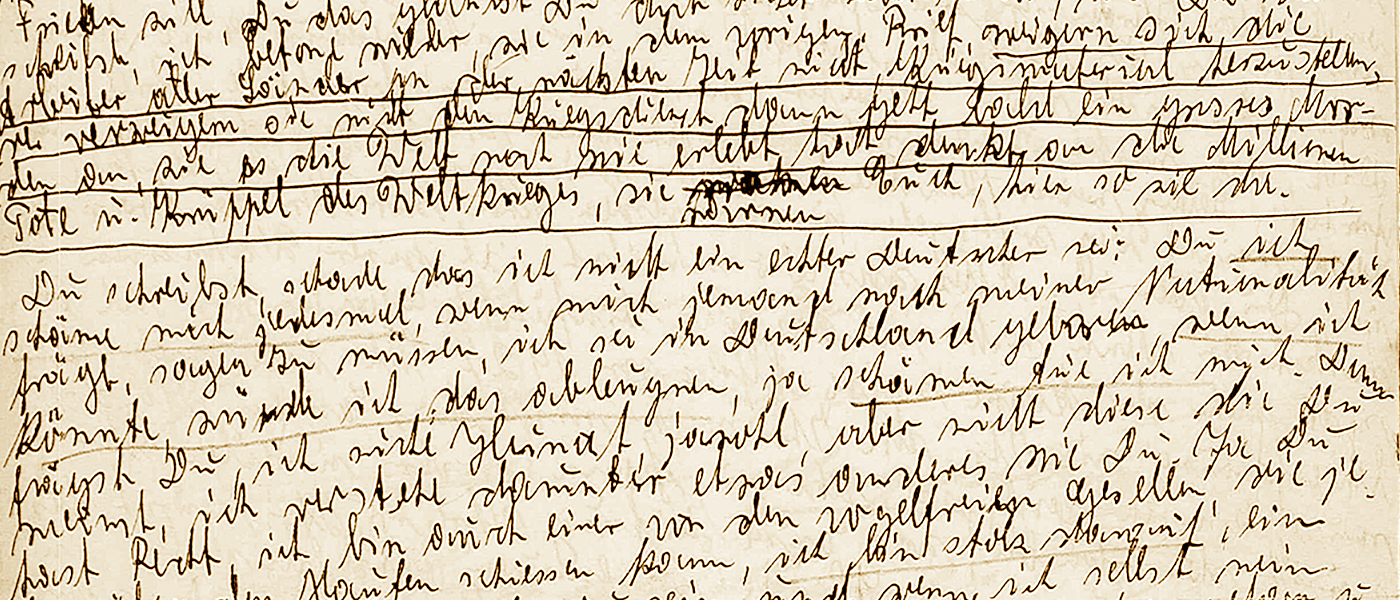 Frieden will, Du das
schreibst, ich betone wieder, wie in dem vorigen Brief, weigern sich die
Arbeiter aller Länder in der nächsten Zeit nicht, Kriegsmaterial herzustellen,
u. verweigern sie nicht den Kriegsdienst, dann geht bald ein grosses Mor-
den an, wie es die Welt noch nie erlebt hat, denkt an die Millionen
Tote u. Krüppel des Weltkrieges, sie warnen Euch, hier so viel zu.
Du schreibst, schade das ich nicht ein echter Deutscher sei: Du ich
schäme mich jedesmal, wenn mich jemand nach meiner Nationalität
frägt, sagen zu müssen, ich sei in Deutschland geboren, wenn ich
könnte würde ich das ableugnen, ja schämen tue ich mich. Dann
frägst Du, ich wäre, jawohl, aber nicht diese die Du
meinst, ich verstehe darunter etwas anderes wie Du. Ja Du
hast Recht, ich bin auch einer von den vogelfreien Gesellen, die je-
Haufen schiessen kann, ich bin stolz darauf, ein
und wenn ich selbst nein